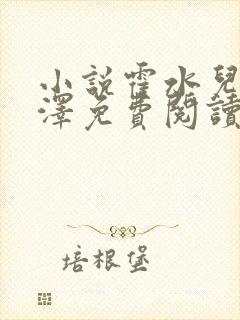 小說霍水兒
澤免費閱讀
培根堡